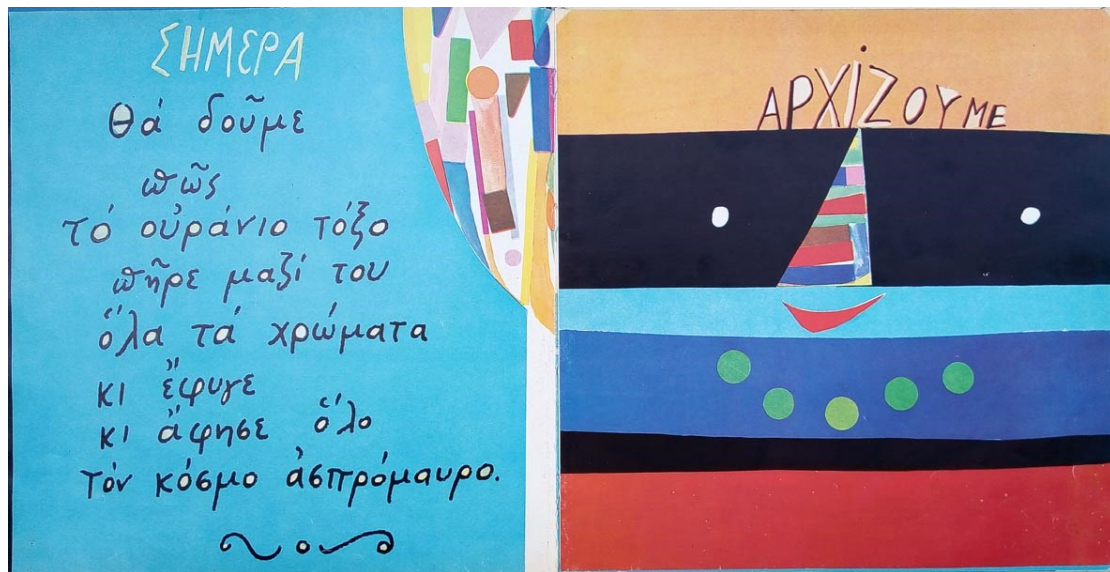 ΣΗΜΕΡΑ
θά δοῦμε
πῶς
τό οὐράνιο τόξο
πῆρε μαζί του
ὅλα τά χρώματα
κι ἔφυγε
κι ἄφησε ὅλο
τόν κόσμο ἀσπρόμαυρο.
ΑΡΧΙΖΟΥΜΕ